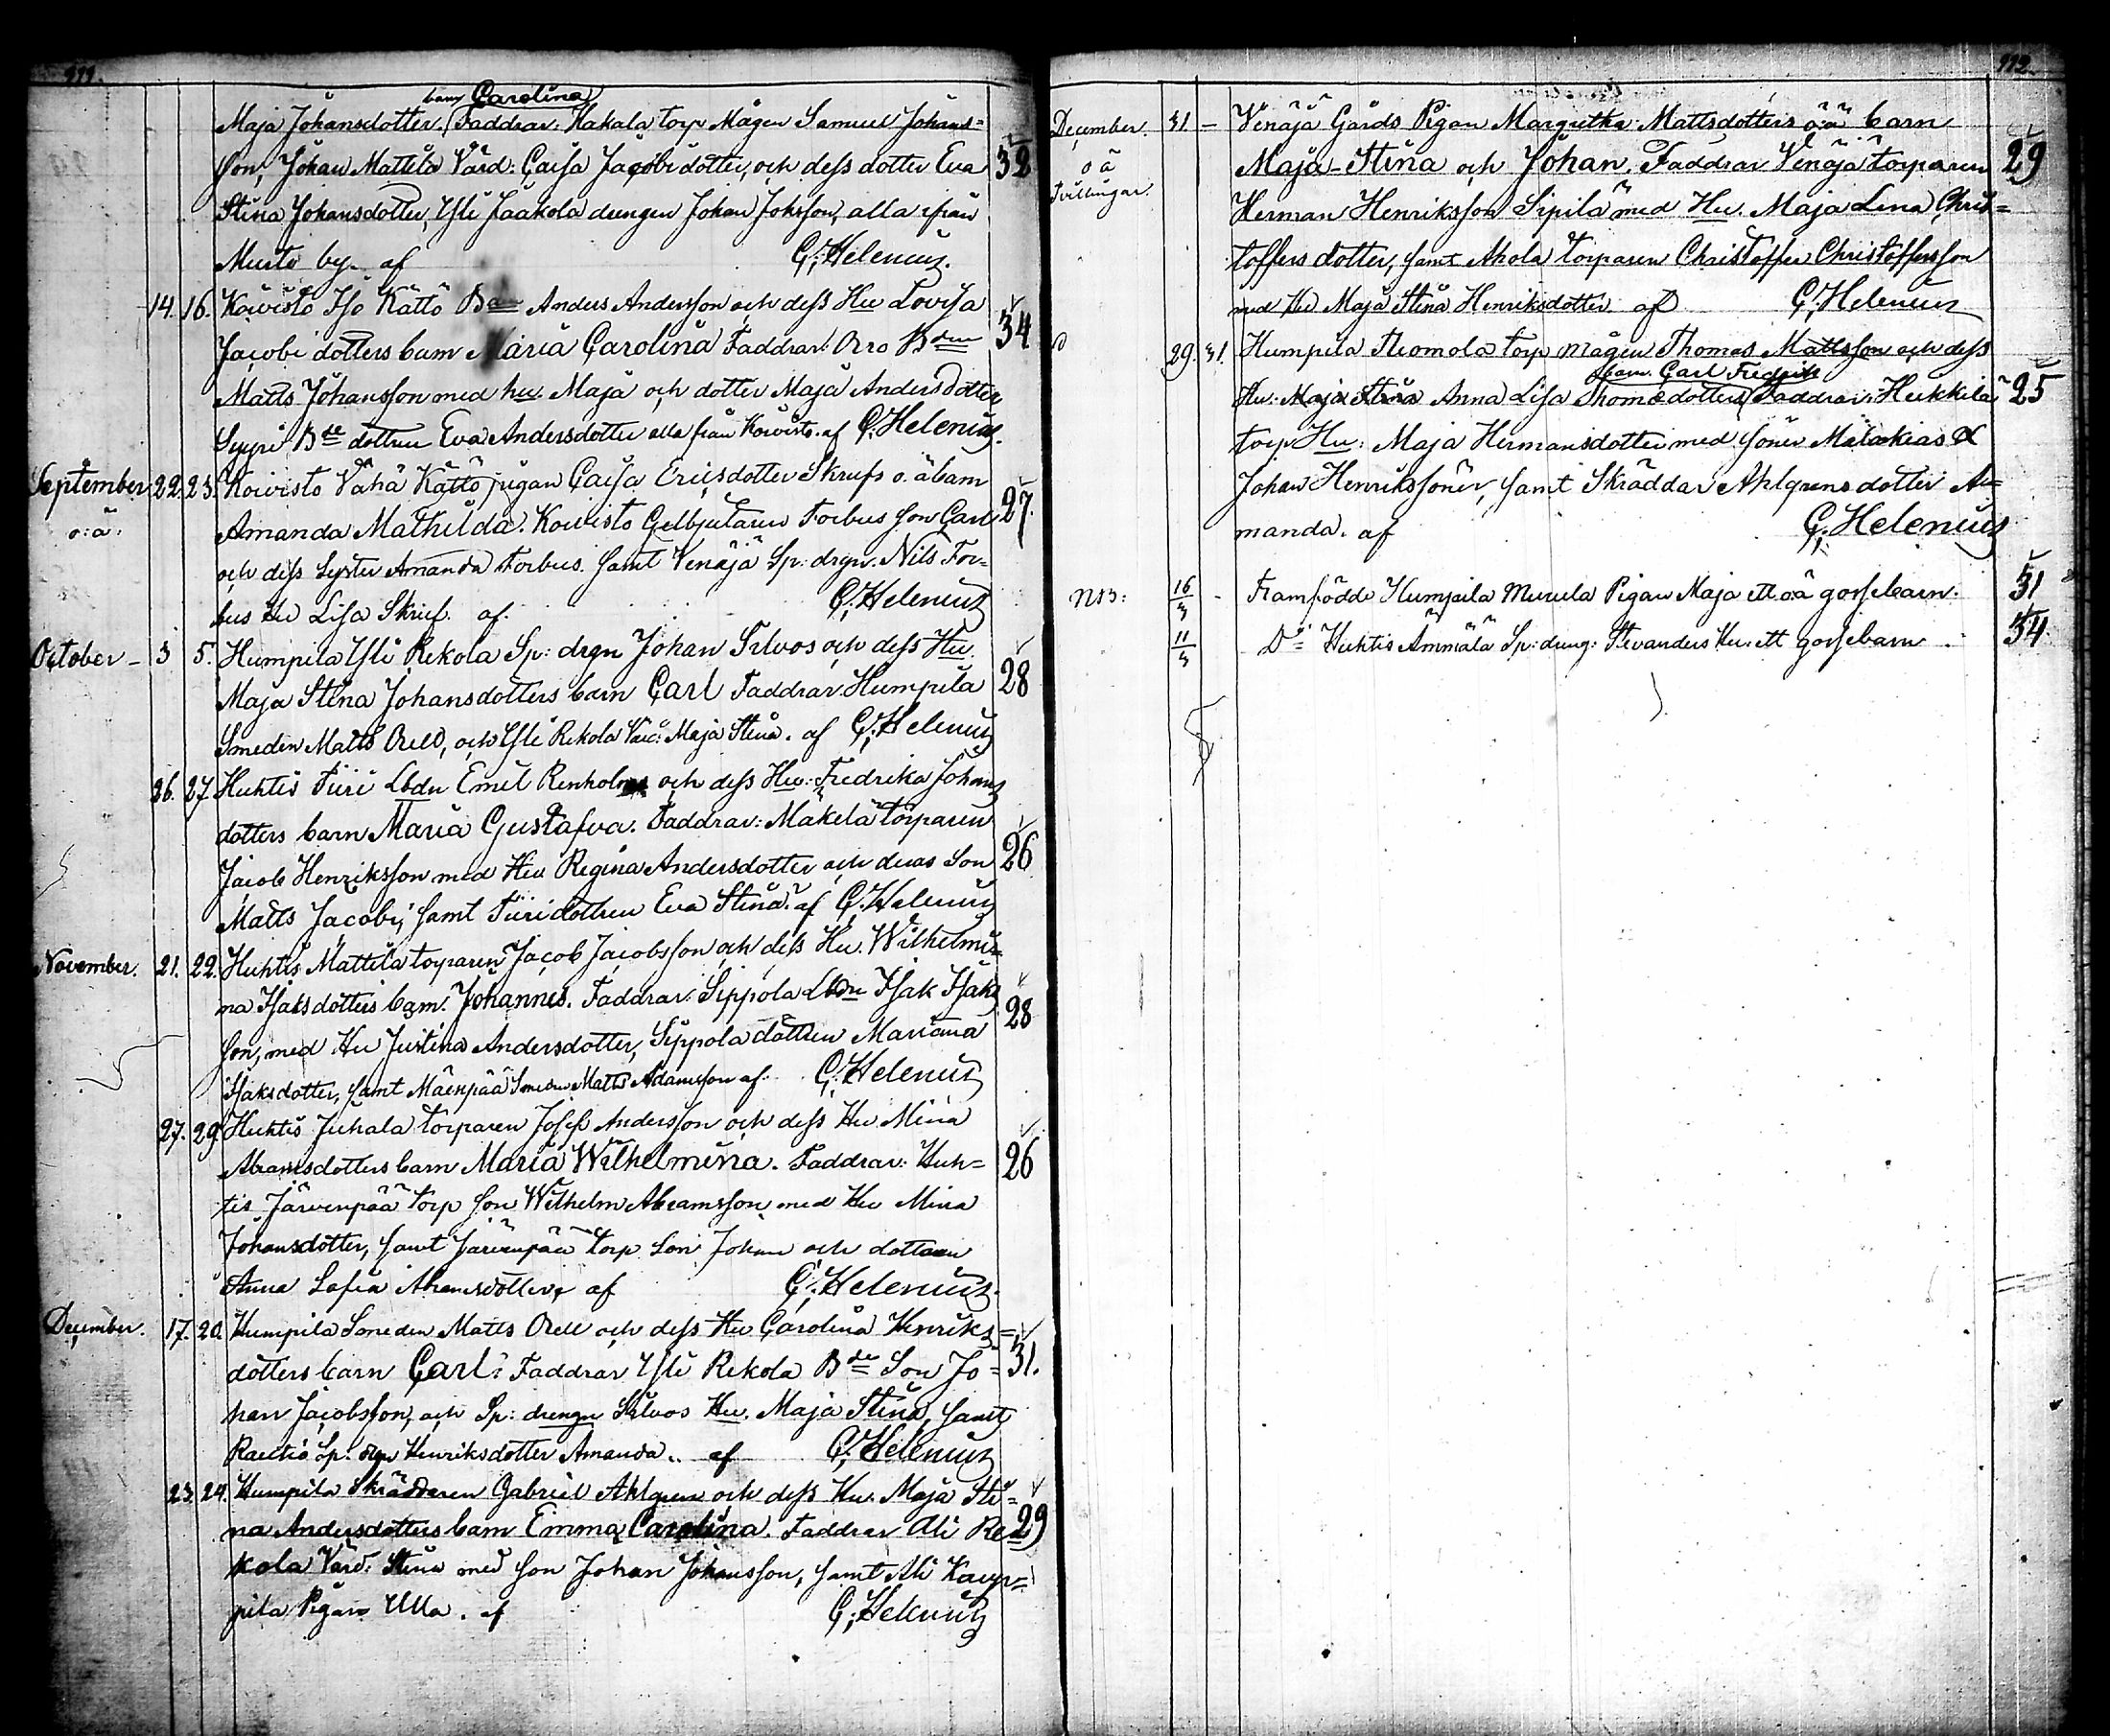 111.
barn Carolina
Maja Johansdotter. Faddrar: Hakala torp Mågen Samuel Johans=
son, Johan Mattila Värd: Caisa Jacobidotter, och dess dotter Eva 32
Stina Johansdotter, Ysli Jaakola drengen Johan Johsson, alla ifrån
Murto by. af C; Helenius.
14. 16. Koivisto Iso Kättö Bdn Anders Andersson och dess Hu Lovisa
Jacobi dotters barn Maria Carolina Faddrar: Orro Bden 34
Matts Johansson med hu. Maja och dotter Maja Andersdotter
Syyri Bde dottren Eva Andersdotter alla från Koivisto. af C; Helenius.
September 22. 23. Koivisto Vähä Kättö pigan Caisa Ericsdotter Skrufs o. ä barn
o: ä: Amanda Mathilda. Koivisto Gelbjutaren Forbus son Carl 27.
och dess Syster Amanda Forbus. samt Venäjä Sp: drgn. Nils For=
bus Hu Lisa Skruf. af. C; Helenius
October - 3 5. Humpila Ysli Rekola Sp: drgn Johan Silvos och dess Hu.
Maja Stina Johansdotters barn Carl Faddrar. Humpila 28
Smeden Matts Orell, och Ysli Rekola Värd: Maja Stina. af C; Helenius
26. 27. Huhtis Tiiri Lbdn Emil Renholm och dess Hu: Fredrika Johans
dotters barn Maria Gustafva. Faddrar: Mäkelä torparen
Jacob Henriksson med Hu Regina Andersdotter och deras Son 26
Matts Jacobi, samt Tiiri dottren Eva Stina. af C; Helenius
November. 21. 22. Huhtis Mattila torparen Jacob Jacobsson och dess Hu. Wilhelmi=
na Isaksdotters barn. Johannes. Faddrar: Sippola Lbdn Isak Isaks 28
son, med Hu Justina Andersdotter, Sippola dottren Mariana
Isaksdotter, samt Mäenpää Smeden Matts Adamsson af. C; Helenius
27. 29. Huhtis Juhala torparen Josef Andersson och dess Hu Mina
Abramsdotters barn Maria Wilhelmina. Faddrar: Huh= 26
tis Järvenpää torp son Wilhelm Abramsson med Hu Mina
Johansdotter, samt Järvenpää torp Son Johan och dottren
Anna Sofia Abramsdotter, af C; Helenius.
December. 17. 20. Humpila Smeden Matts Orell och dess Hu Carolina Henriks=
dotters barn Carl: Faddrar Ysli Rekola Bde Son Jo= 31.
han Jacobsson, och Sp: drengn Silvos Hu. Maja Stina, samt
Rautio Sp. drgn Henriksdotter Amanda.. af C; Helenius
23. 24. Humpila Skräddaren Gabriel Ahlgren och dess Hu. Maja Sti=
na Andersdotters barn Emma Carolina. Faddrar Ali Re= 29
kola Värd: Stina med son Johan Johansson, samt Ali Kaup=
pila Pigan Ulla. af C; Helenius
112.
December. 31 - Venäjä Gårds Pigan Margretha Mattsdotters o:ä barn
o ä Maja-Stina och Johan. Faddrar Venäjä torparen 29
Tvillingar. Herman Henriksson Sipilä med Hu. Maja Lena Chris=
toffers dotter, samt Ahola torparen Christoffer Christoffersson
med Hu Maja Stina Henriksdotter af C; Helenius
29. 31. Humpila Tuomola torp mågen Thomas Mattsson och dess
barn Carl Fredrik
Hu: Maja Stina Anna Lisa Thomædotters Faddrar: Heikkilä 25
torp Hu: Maja Hermansdotter med söner Malakias &
Johan Henrikssöner, samt Skräddar Ahlgrens dotter A=
manda. af C; Helenius
NB: 16/3 - Framfödde Humpila Murula Pigan Maja ett oä gossebarn. 31
11/3 Do Huhtis Ämmälä Sp: dreng: Stevanders Hu: ett gossebarn. 34